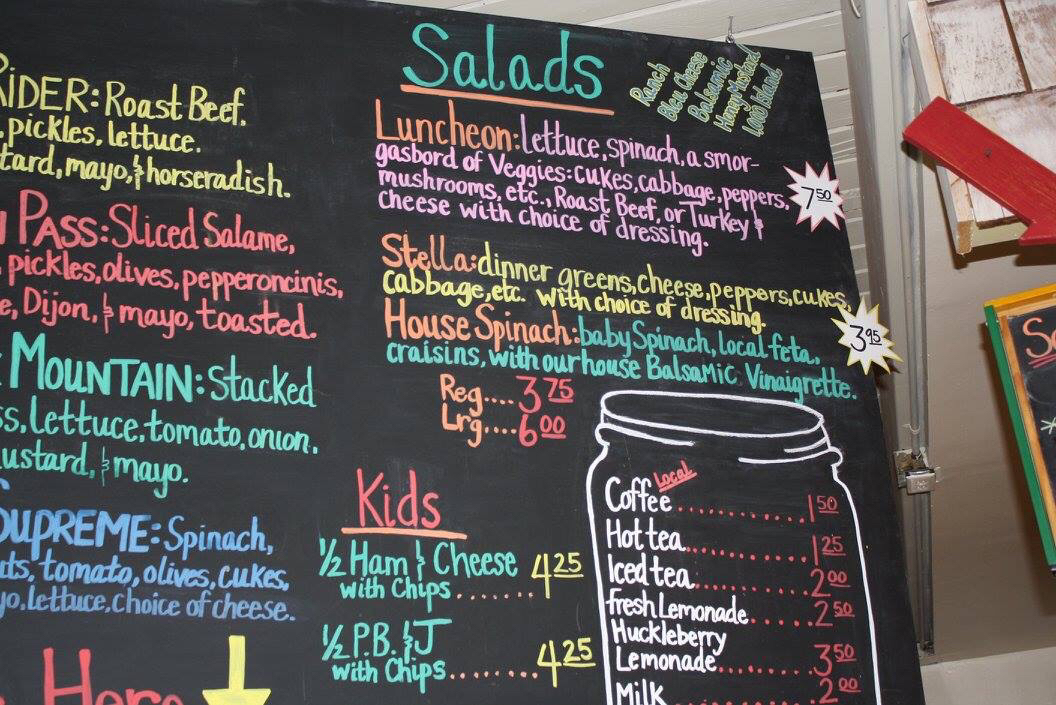 RIDER: Roast Beef.
pickles, lettuce.
mayo, & horseradish.
PASS: Sliced Salame,
pickles, olives, pepperoncinis,
Dijon, & mayo, toasted.
MOUNTAIN: Stacked
Lettuce, tomato, onion.
& mayo.
SUPREME: Spinach,
tomato, olives, cukes,
lettuce, choice of cheese.
Here
Salads
Ranch
Bleu Cheese
Balsamic
Honey Mustard
1000 Island
Luncheon: lettuce, spinach, a smor-
gasbord of Veggies: cukes, cabbage, peppers,
mushrooms, etc., Roast Beef, or Turkey &
cheese with choice of dressing.
7.50
Stella: dinner greens, cheese, peppers, cukes,
cabbage, etc. with choice of dressing.
3.95
House Spinach: baby Spinach, local feta,
craisins, with our house Balsamic Vinaigrette.
Reg.... 3 75
Lrg.... 6 00
Kids
1/2 Ham & Cheese
with Chips ........ 4 25
1/2 P.B. & J
with Chips ........ 4 25
Local
Coffee ............ 1 50
Hot tea ............ 1 25
Iced tea ............ 2 00
fresh Lemonade ...... 2 50
Huckleberry
Lemonade ......... 3 50
Milk ............ 2 00